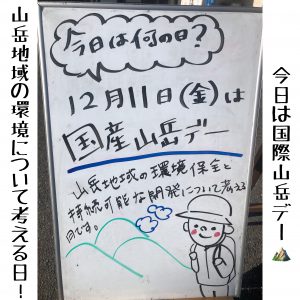 今日は国際山岳デー⛰️
今日は何の日?
12月11日(金)は
国産山岳デー
山岳地域の環境保全と
持続可能な開発について考える
日です。
山岳地域の環境について考える日!